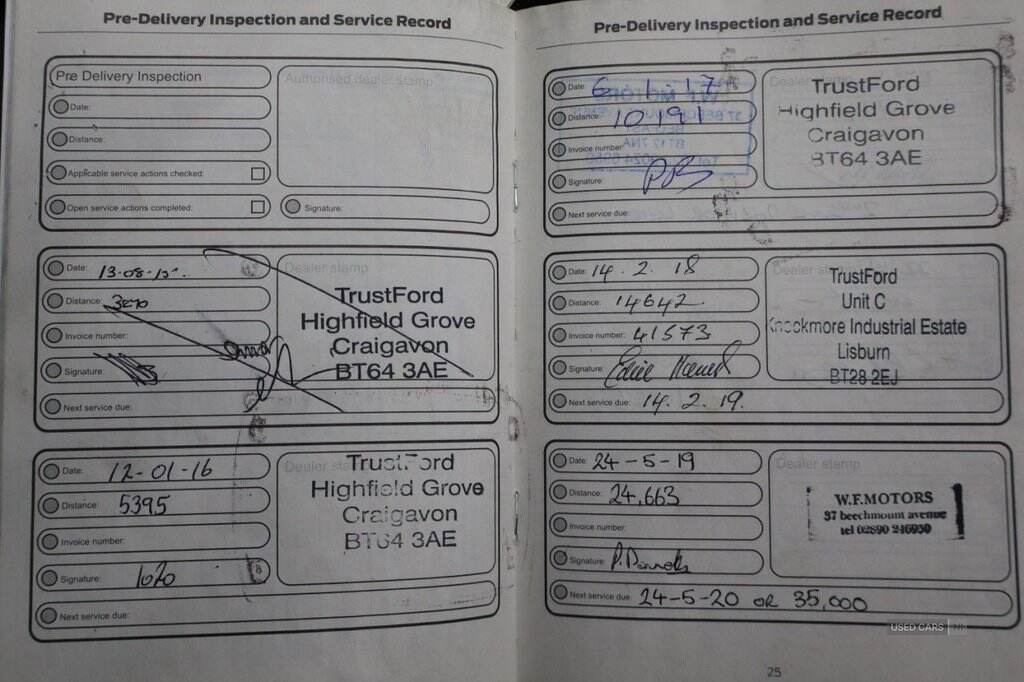 Pre-Delivery Inspection and Service Record
Pre Delivery Inspection
Authorised dealer stamp
Date:
Distance:
Applicable service actions checked:
Open service actions completed:
Signature:
Date: 13-08-15
Dealer stamp
Distance:
Invoice number:
Signature:
Next service due:
TrustFord
Highfield Grove
Craigavon
BT64 3AE
Date: 12-01-16
Distance: 5395
Invoice number:
Signature:
Next service due:
TrustFord
Highfield Grove
Craigavon
BT64 3AE
Pre-Delivery Inspection and Service Record
Date: 6.1.17
Distance: 10191
Invoice number:
Signature:
Next service due:
TrustFord
Highfield Grove
Craigavon
BT64 3AE
Date: 14.2.18
Dealer stamp
Distance: 14642
Invoice number: 41573
Signature:
Next service due: 14.2.19.
TrustFord
Unit C
Knockmore Industrial Estate
Lisburn
BT28 2EJ
Date: 24-5-19
Dealer stamp
Distance: 24,663
Invoice number:
Signature:
Next service due: 24-5-20 OR 35,000
W.F.MOTORS
37 beechmount avenue
tel 02890 246950
USED CARS NI
25